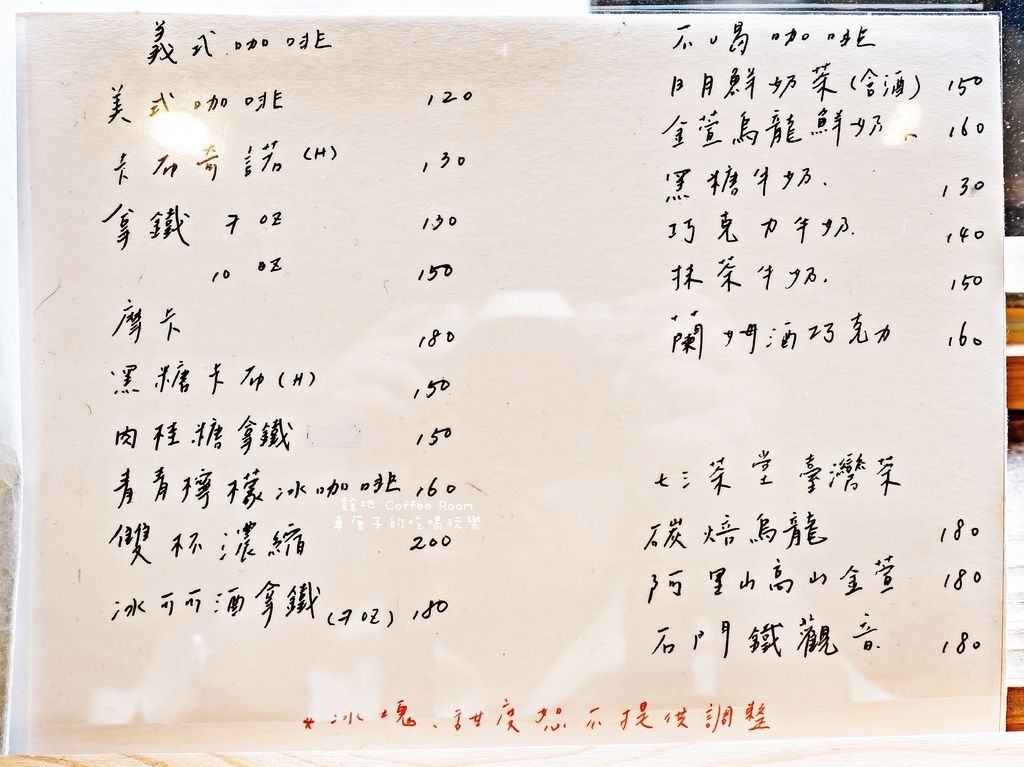 義式咖啡
美式咖啡 120
卡布奇諾(H) 130
拿鐵 7oz 130
10 oz 150
摩卡 180
黑糖卡布(H) 150
肉桂糖拿鐵 150
青青檸檬冰咖啡 160
雙杯濃縮 200
冰可可酒拿鐵(7oz) 180
不喝咖啡
日月鮮奶茶(含酒) 150
金萱烏龍鮮奶茶 160
黑糖牛奶. 130
巧克力牛奶. 140
抹茶牛奶. 150
蘭姆酒巧克力 160
七三茶堂 臺灣茶
碳焙烏龍 180
阿里山高山金萱 180
石門鐵觀音. 180
*冰塊、甜度恕不提供調整
餘地 Coffee Room
車厘子的吃喝玩樂